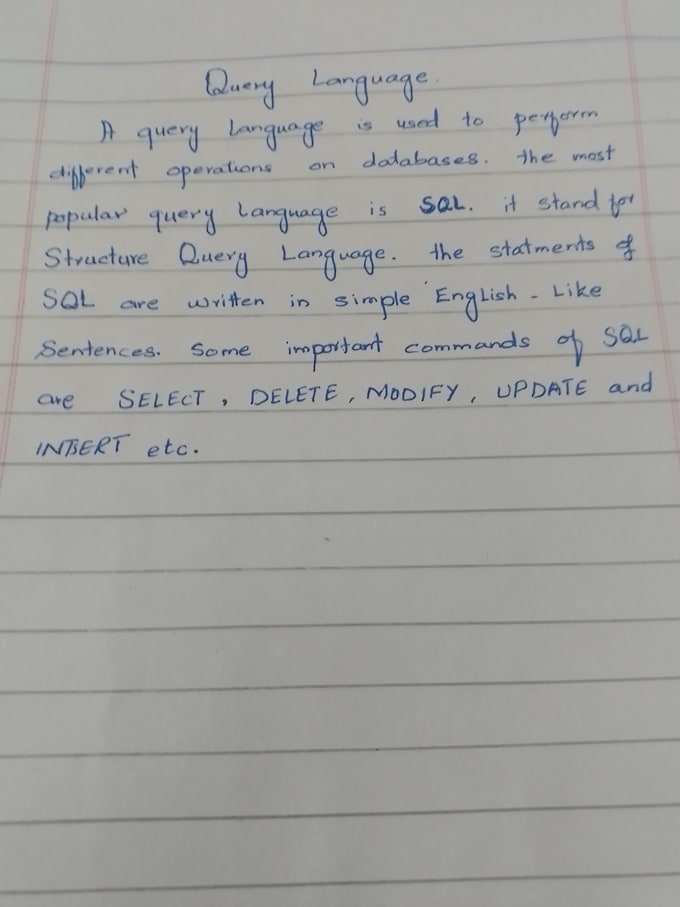 Query Language.
A query Language is used to perform
different operations on databases. the most
popular query Language is SQL. it stand for
Structure Query Language. the statments of
SQL are written in simple English - Like
Sentences. Some important commands of SQL
are SELECT, DELETE, MODIFY, UPDATE and
INSERT etc.